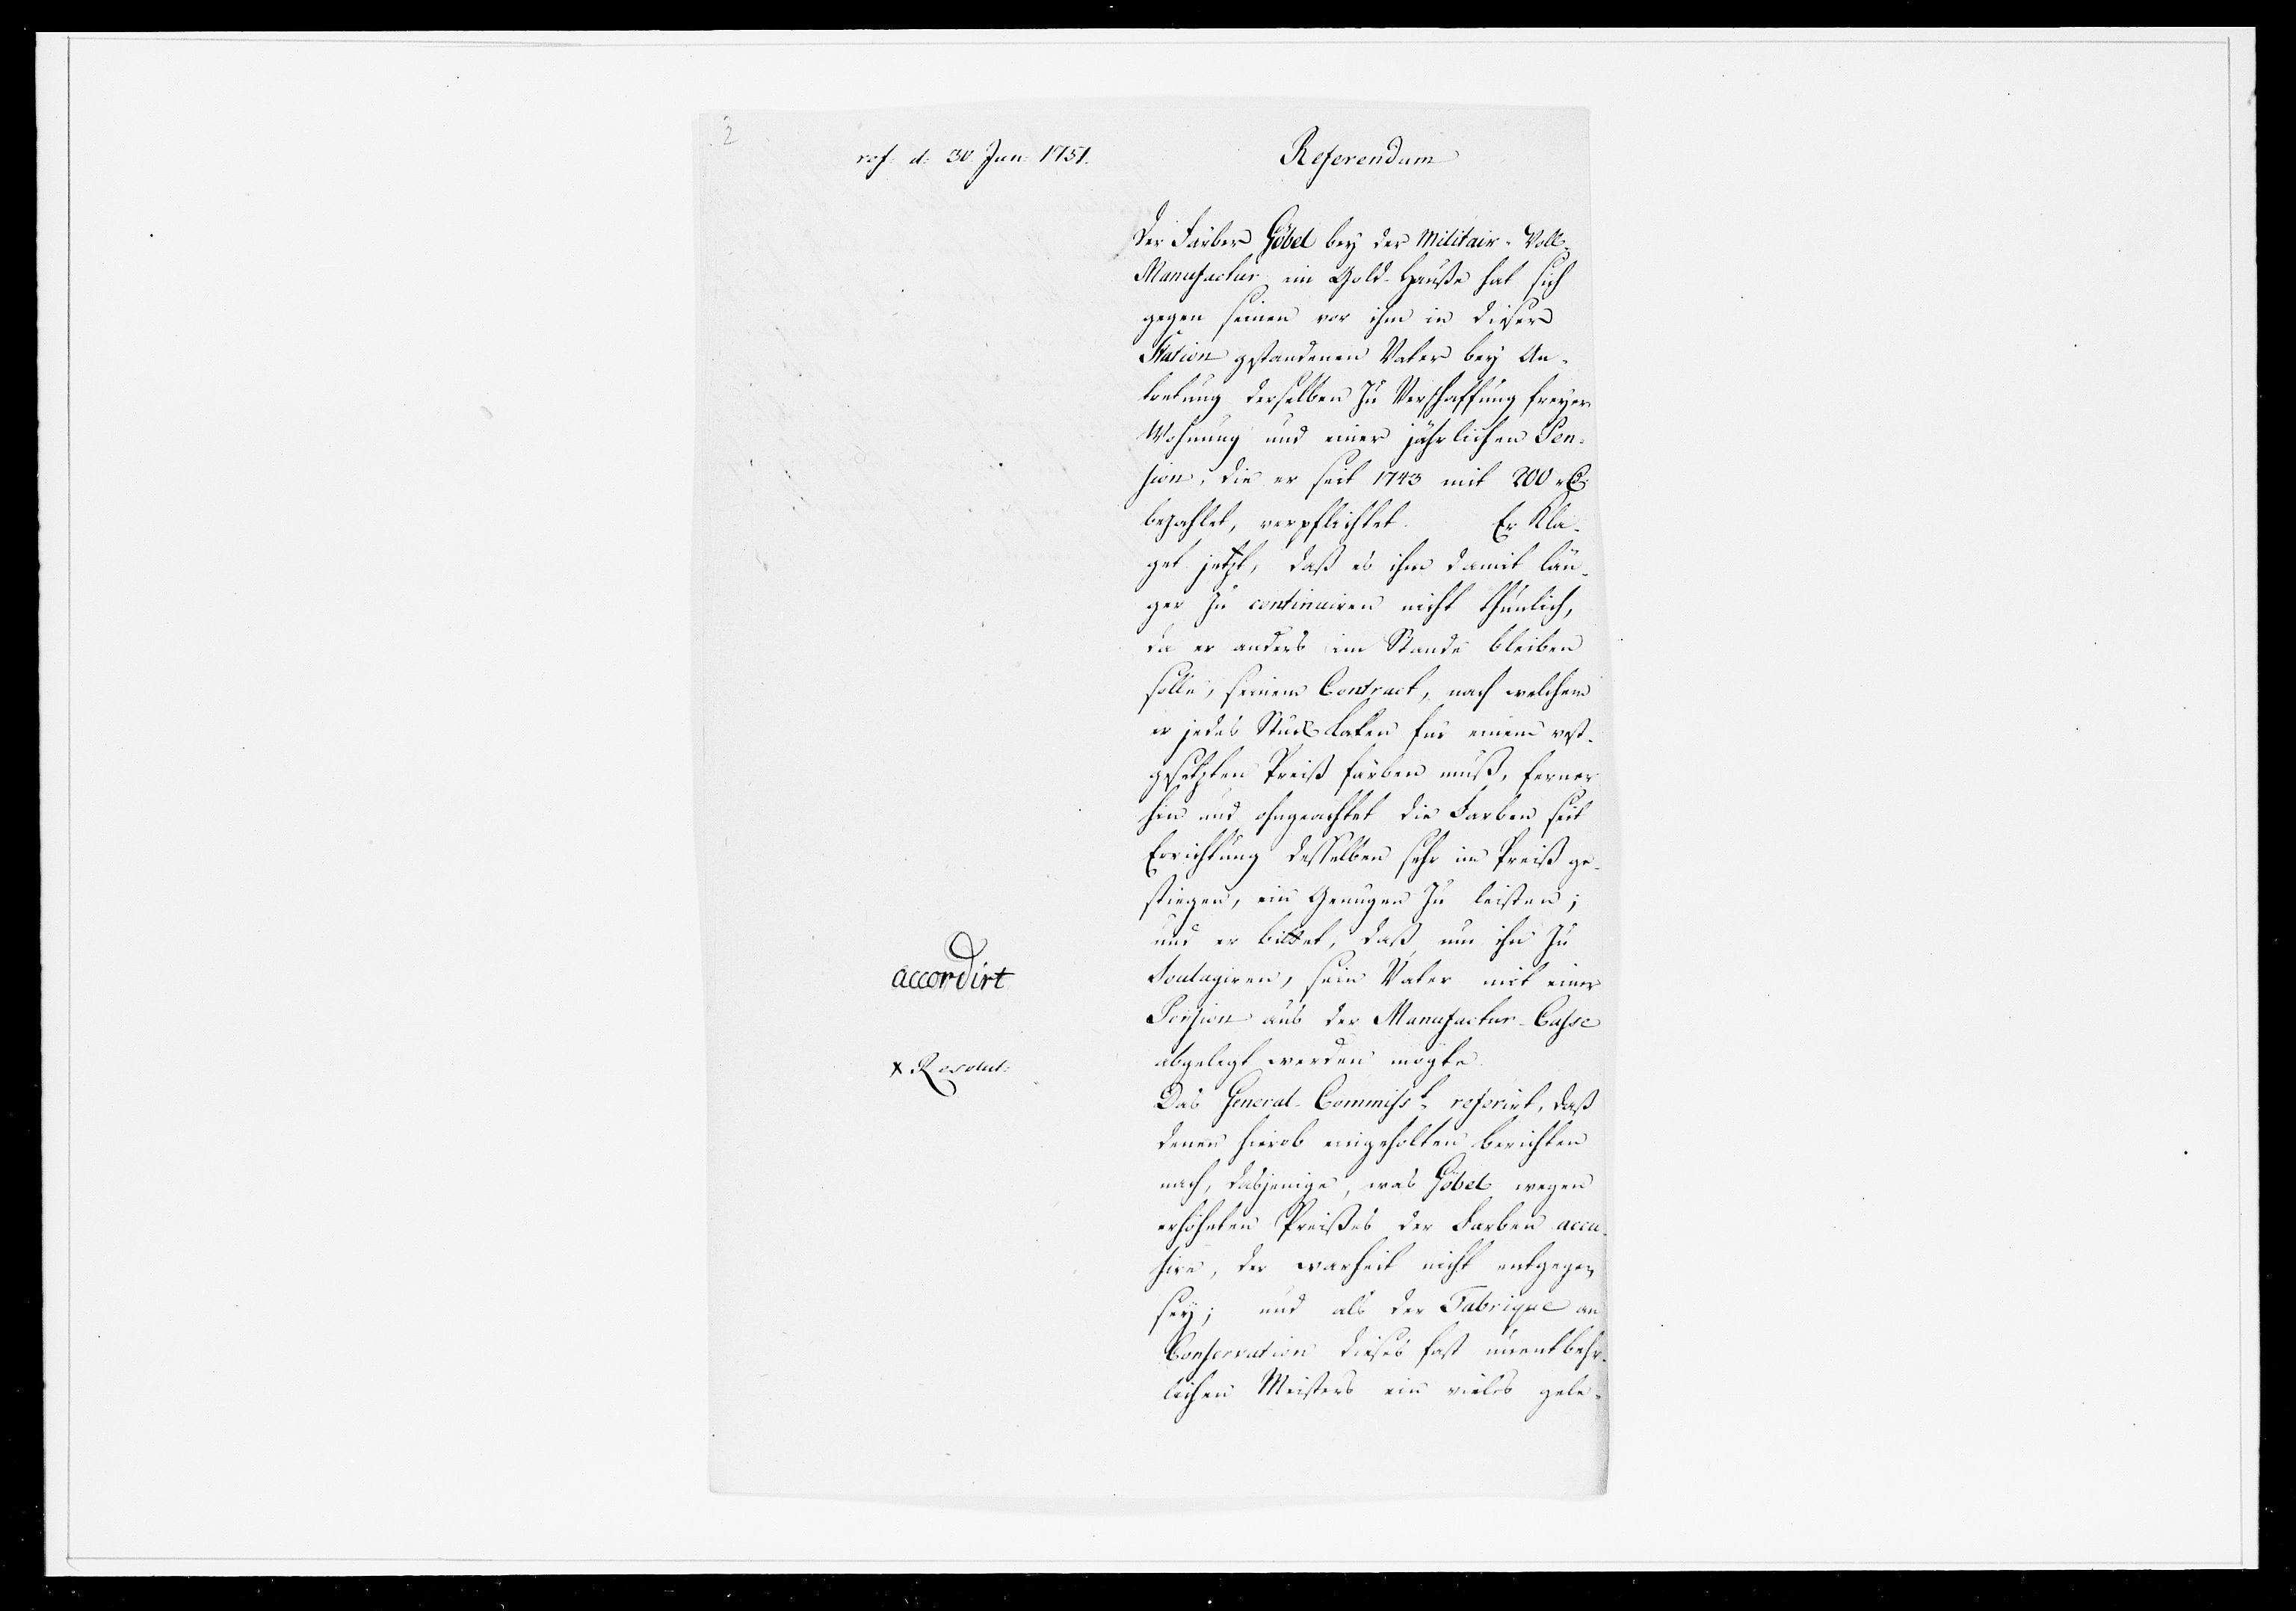 2
ref: d: 30 Jun: 1751.
Referendum
Der Färber Göbel bey der Militair-Woll-
Manufactur im Gold-Hauße hat sich
gegen seinen vor ihm in dieser
Station gestandenen Vater bey An-
tretung derselben zu Verschaffung freyer
Wohnung und einer jährlichen Pen-
sion, die er seit 1743 mit 200 rt
bezahlet, verpflichtet. Er kla-
get jetzt, daß es ihm damit län-
ger zu continuiren nicht thunlich,
da er anders im Stande bleiben
solle, seinem Contract, nach welchem
er jedes Stück Laken für einem vest-
gesetzten Preiß färben muß, ferner
hin und ohngeachtet die Farben seit
Errichtung desselben sehr im Preiß ge-
stiegen, ein Genügen zu leisten;
und er bittet, daß, um ihn zu
Soulagiren, sein Vater mit einer
Pension aus der Manufactur-Casse
abgelegt werden mögte.
accordirt
x Resolut:
Das General-Commiss.t referirt, daß
denen hierob eingeholten Berichten
nach, dasjenige, was Göbel wegen
erhöheten Preißes der Farben accu-
sire, der warheit nicht entgegen
sey; und als der Fabrique an
Conservation dieses fast unentbehr-
lichen Meisters ein vieles gele-